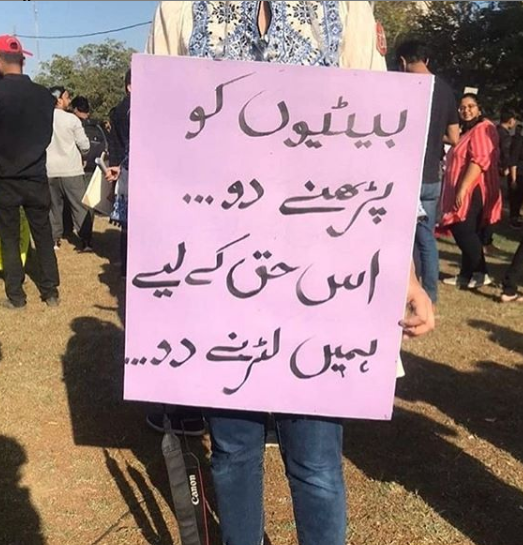 بیٹیوں کو
پڑھنے دو...
اس حق کے لیے
ہمیں لڑنے دو...
Canon